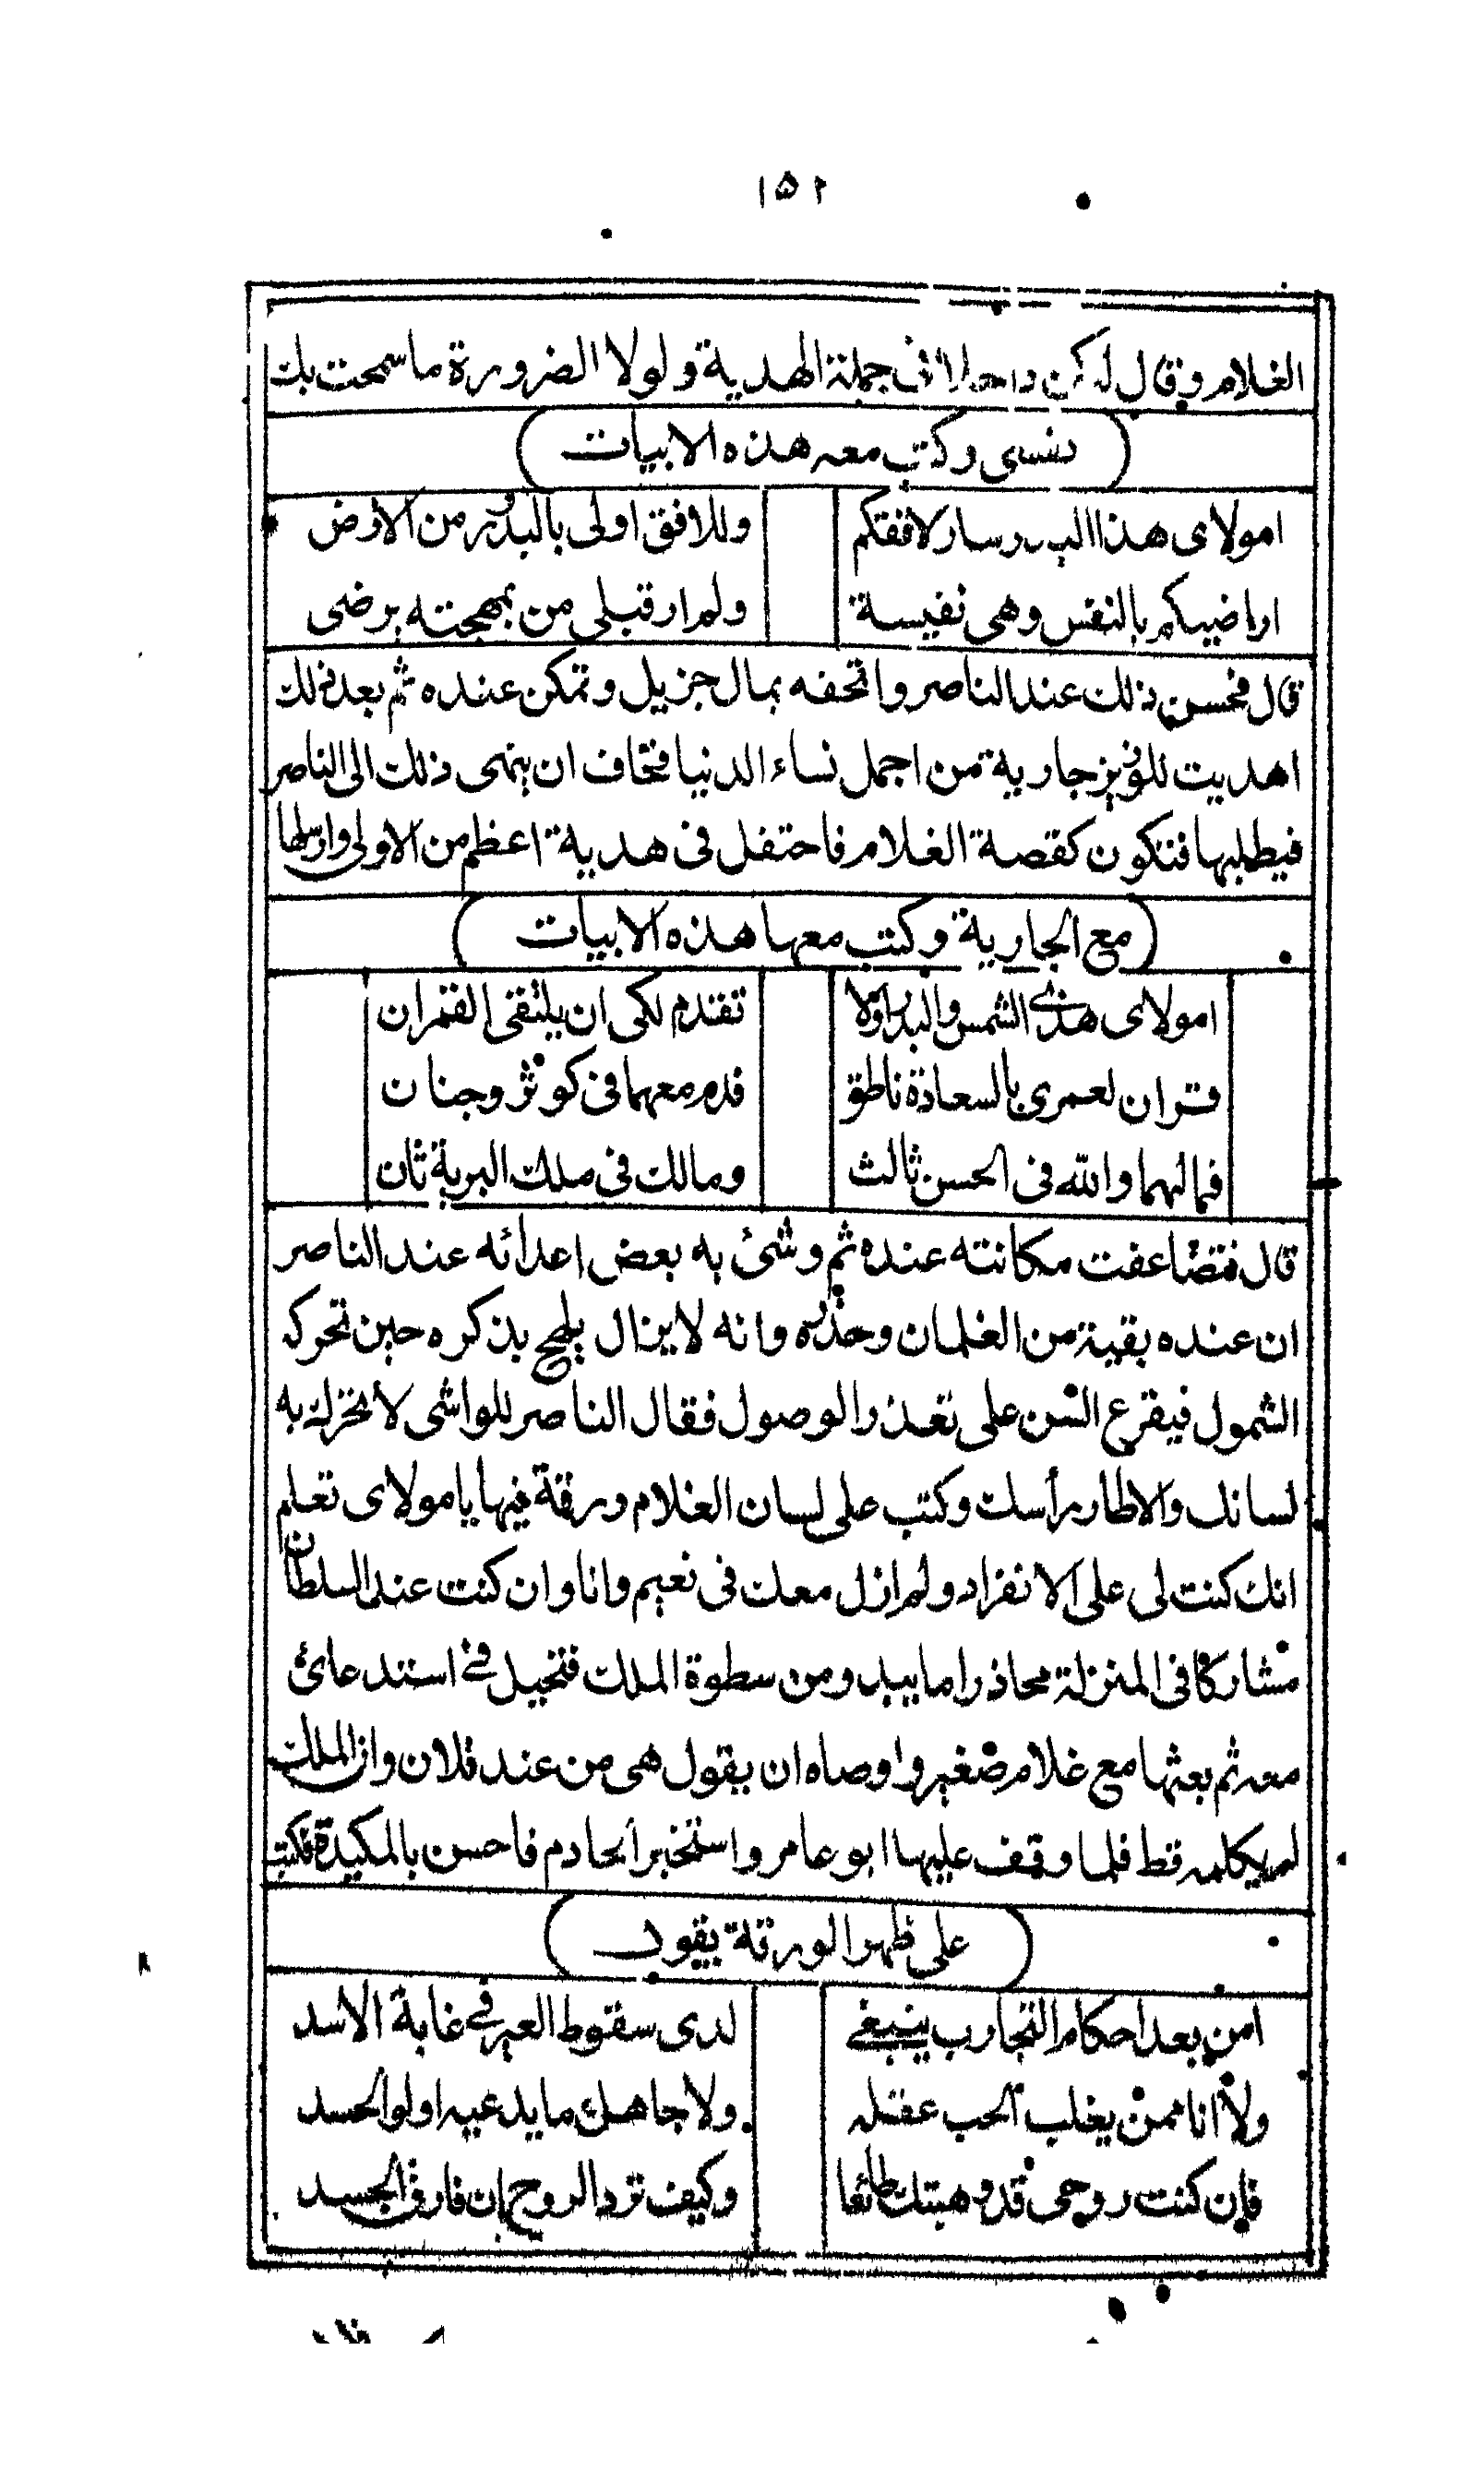 ١٥٢
الغلام وقال له كن داخلا فى جملة الهدية ولولا الضرورة ما سمحت بك
نفسى وكتب معه هذه الابيات
امولاى هذا البدر سار لافقكم وللافق اولى بالبدر من الارض
اراضيكم بالنفس وهى نفيسة ولم ار قبلى من بمهجته يرضى
قال فحسن ذلك عند الناصر واتحفه بمال جزيل وتمكن عنده ثم بعد ذلك
اهديت للوزيز جارية من اجمل نساء الدنيا فخاف ان ينهى ذلك الى الناصر
فيطلبها فتكون كقصة الغلام فاحتفل فى هدية اعظم من الاولى وارسلها
مع الجارية وكتب معها هذه الابيات
امولاى هذى الشمس والبدر اولا تقدم لكى ان يلتقى القمران
قران لعمرى بالسعادة ناطق فدم معهما فى كوثر وجنان
فما لهما والله فى الحسن ثالث ومالك فى ملك البرية ثان
قال فتضاعفت مكانته عنده ثم وشئ به بعض اعدائه عند الناصر
ان عنده بقية من الغلمان وحذره وانه لايزال يلهج بذكره حين تحركه
الشمول فيقرع السن على تعذر الوصول فقال الناصر للواشى لا تحزله به
لسانك والا طار رأسك وكتب على لسان الغلام ورقة فيها يا مولاى تعلم
انك كنت لى على الانفراد ولم ازل معك فى نعيم وانا وان كنت عند السلطان
مشاركا فى المنزلة محاذرا ما يبدو من سطوة الملك فتحيل فى استدعائ
معه ثم بعثها مع غلام صغير واوصاه ان يقول هى من عند فلان وان الملك
لم يكلمه قط فلما وقف عليها ابو عامر واستخبر الخادم فاحسن بالمكيدة فكتب
على ظهر الورقة يقول
امن بعد احكام التجارب ينبغى لدى سقوط العير فى غابة الاسد
ولا انا ممن يغلب الحب عقله ولا جاهل ما يدعيه اولو الحسد
فان كنت روحى قد وهبتك طائعا وكيف ترد الروح ان فارق الجسد